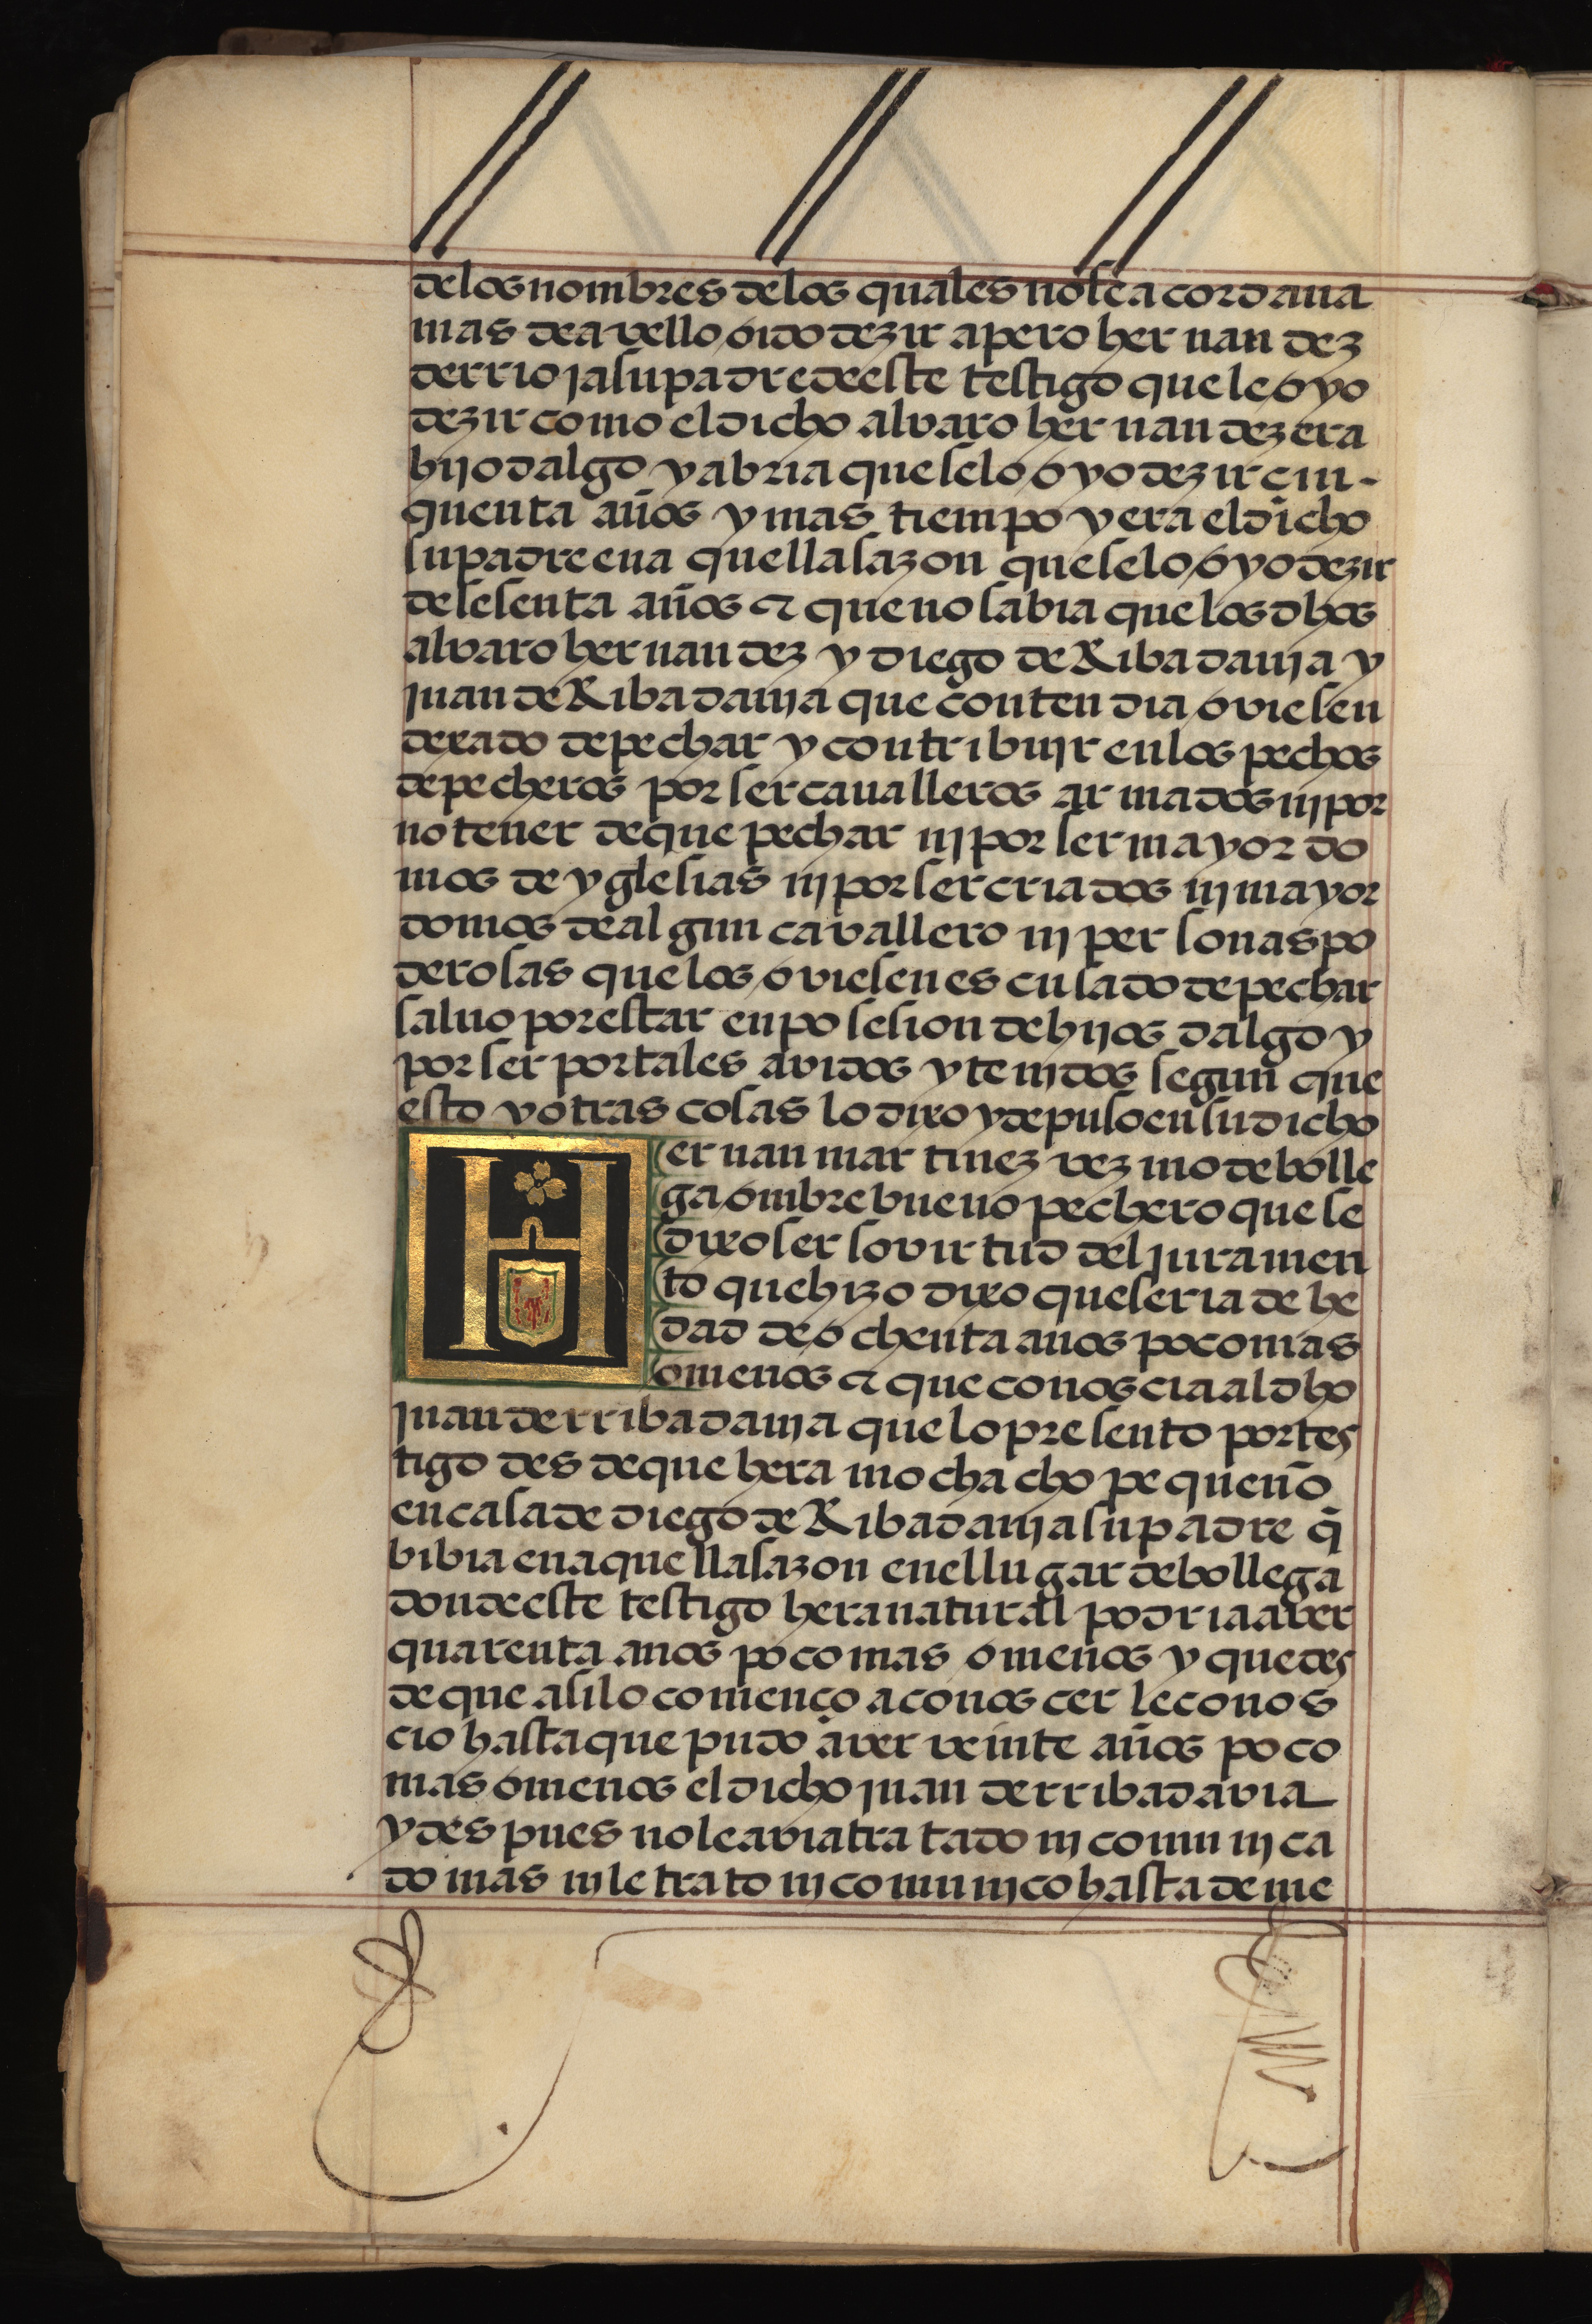 delos nombres delos quales nose acordaua
mas de avello oido dezir a pero hernandez
derrioja su padre deeste testigo que le oyo
dezir como el dicho alvaro hernandez era
hijodalgo y abria que selo oyo dezir cin-
quenta años y mas tiempo y era el dicho
su padre en aquella sazon que selo oyo dezir
de sesenta años & que no sabia que los dhos
alvaro hernandez y diego de Ribadauja y
juan de Ribadauja que contendia oviesen
dexado de pechar y contribujr en los pechos
de pecheros por ser caualleros armados nj por
no tener de que pechar nj por ser mayordo
mos de yglesias nj por ser criados nj mayor
domos de algun cavallero nj personas po
derosas que los oviesen escusado de pechar
saluo por estar en posesion de hijos dalgo y
por ser por tales avidos y tenjdos segun que
esto y otras cosas lo dixo y depuso en su dicho
Hernan martinez vezino de bolle
ga ombre bueno pechero que se
dixo ser so virtud del juramen
to que hizo dixo que seria de he
dad de ochenta anos poco mas
o menos & que conoscia al dho
juan derribadauja que lo presento por tes
tigo desde que hera mochacho pequeño
en casa de diego de Ribadauja su padre q̃
bibia en aquella sazon en el lugar de bollega
donde este testigo hera natural podria aver
quarenta anos poco mas o menos y que des
de que asi lo comenco a conoscer le conos
cio hasta que pudo aver veinte años poco
mas o menos el dicho juan derribadavia
y despues no le avia tratado nj comunjca
do mas nj le trato nj comunjco hasta de me